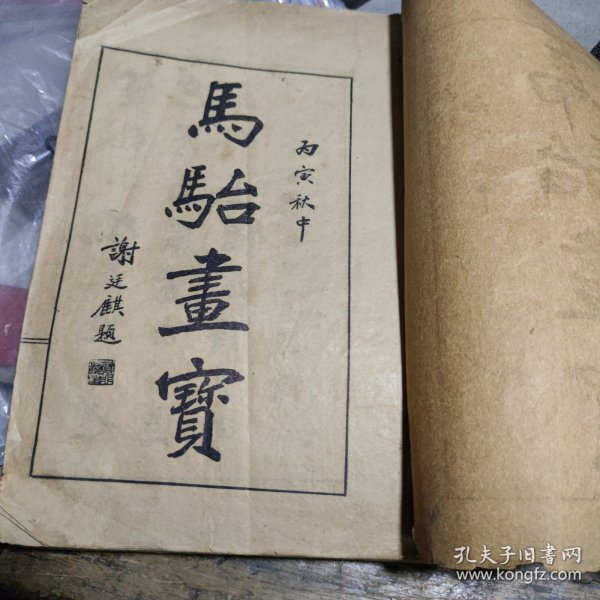 丙寅秋中
馬駘畫寶
謝廷麒題
孔夫子旧书网
www.kongfz.com